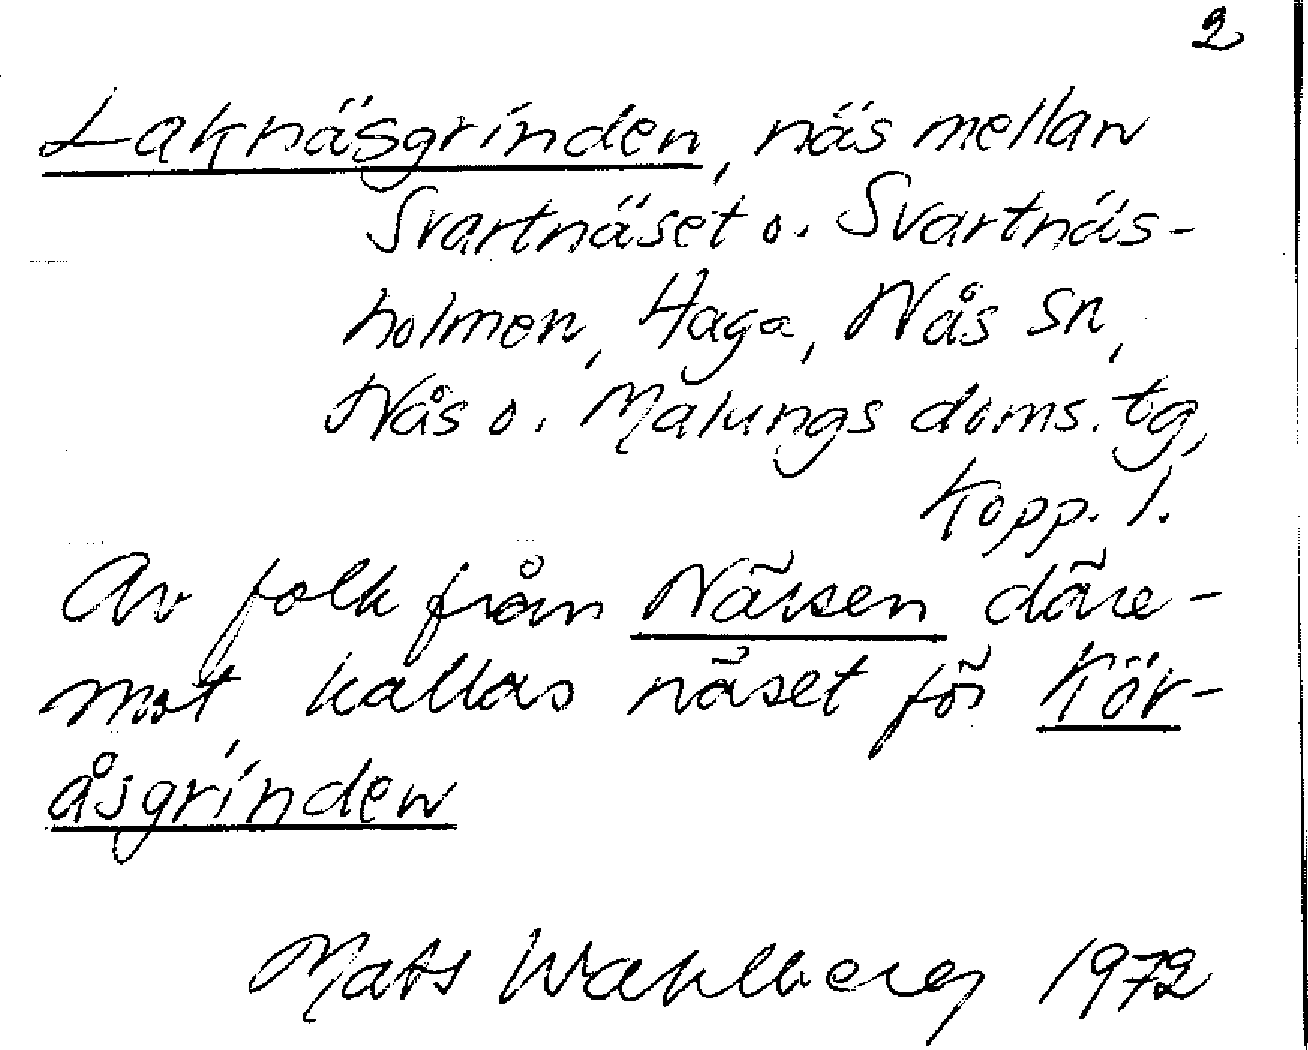 2
Laknäsgrinden, näs mellan
Svartnäset o. Svartnäs-
holmen, Haga, Nås sn,
Nås o. Malungs doms. tg,
Kopp. l.
Av folk från Närsen däre-
mot kallas näset för Kör-
åsgrinden
Mats Wahlberg 1972